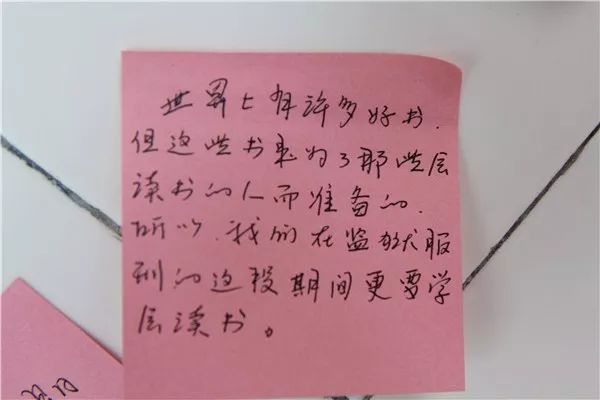 世界上有许多好书,
但这些书是为了那些会
读书的人而准备的,
所以,我们在监狱服
刑的这段期间更要学
会读书。